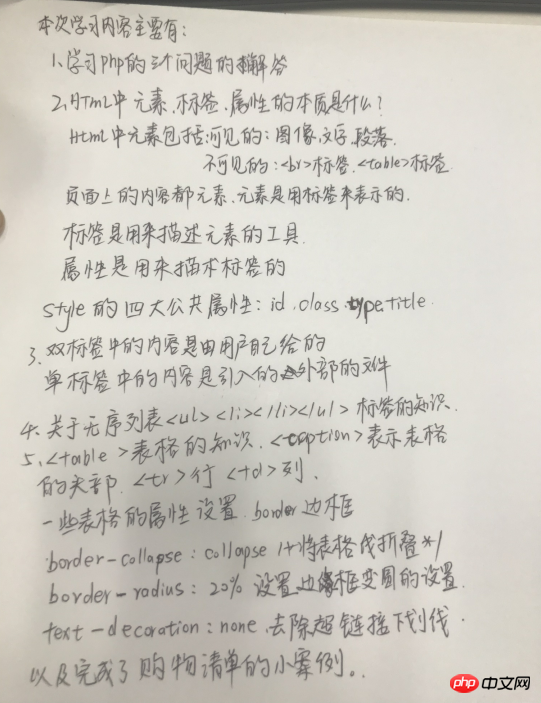 本次学习内容主要有:
1.学习php的三个问题的解答
2.HTml中元素.标签.属性的本质是什么?
Html中元素包括:可见的:图像.文字.段落.
不可见的:<br>标签.<table>标签
页面上的内容都元素.元素是用标签来表示的.
标签是用来描述元素的工具.
属性是用来描术标签的
style的四大公共属性:id.class.type.title.
3.双标签中的内容是由用户自己给的
单标签中的内容是引入的外部的文件
4.关于无序列表<ul><li></li></ul>标签的知识.
5.<table>表格的知识.<caption>表示表格
的头部.<tr>行<td>列.
一些表格的属性设置.border边框
border-collapse:collapse /*将表格线折叠*/
border-radius:20% 设置边框变圆的设置.
text-decoration:none.去除超链接下划线.
以及完成了购物清单的小案例。
php 中文网